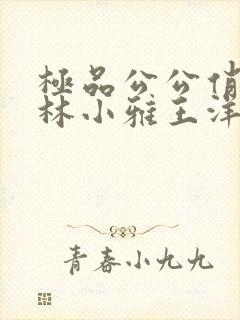 極品公公俏
林小雅王洋
青春小九九